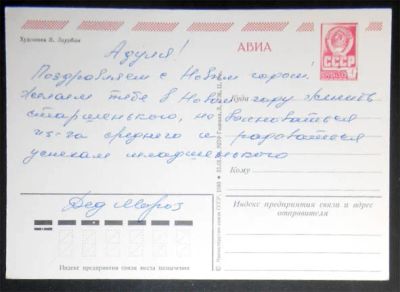 Художник В. Зарубин
АВИА
СССР
Адуля!
Поздравляем с Новым годом!
Желаем тебе в Новом году женить
старшенького, не волноваться
из-за среднего и радоваться
успехам младшенького
Дед Мороз
Куда
Кому
Индекс предприятия связи и адрес
отправителя
Индекс предприятия связи места назначения
© Министерство связи СССР, 1980